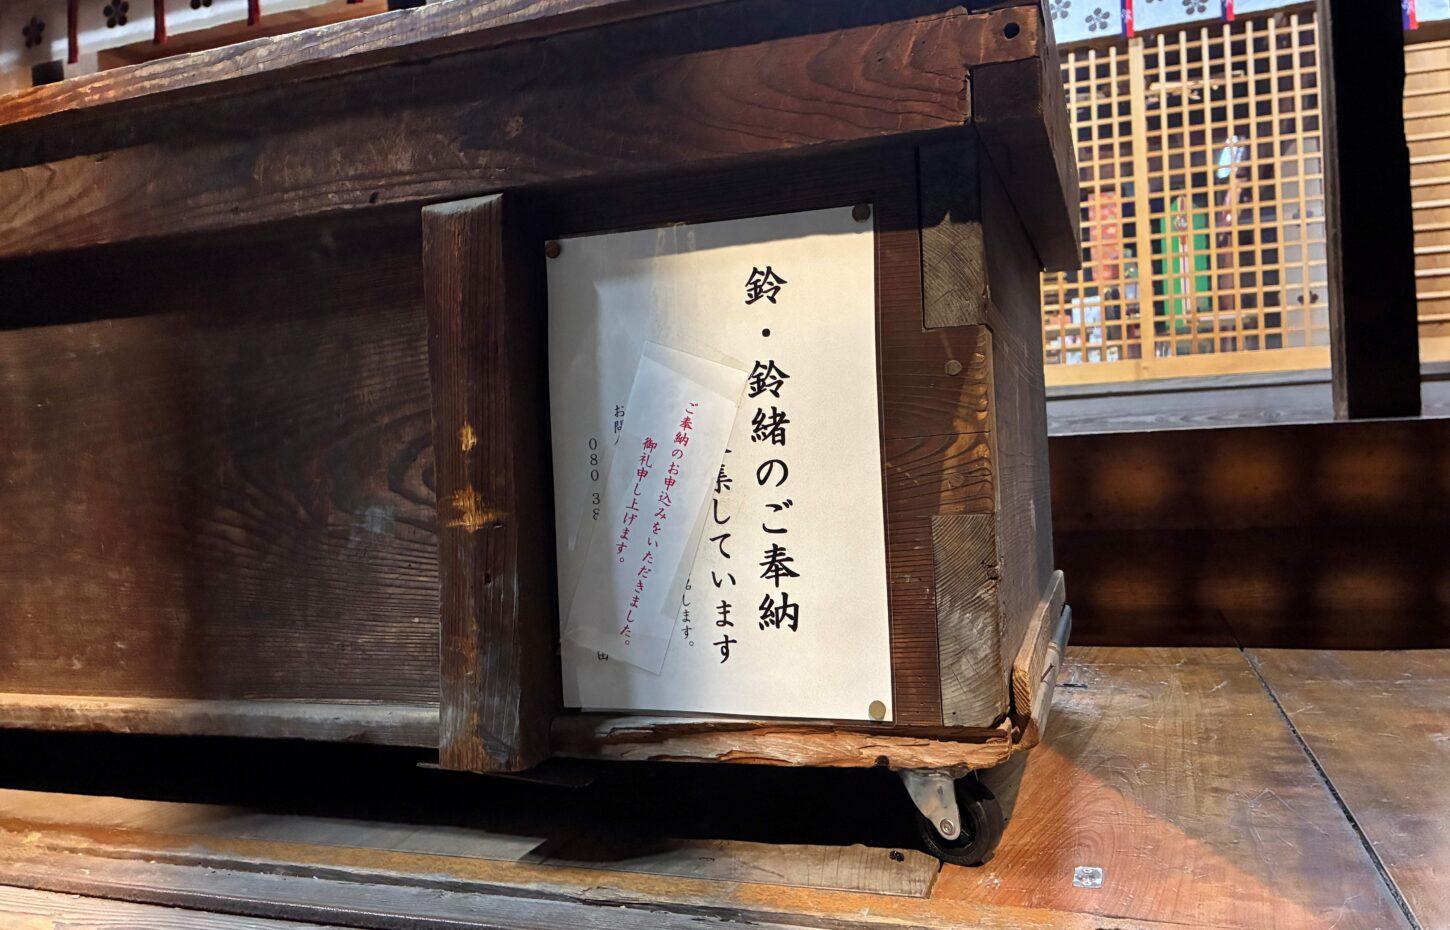 鈴・鈴緒のご奉納
集しています
します。
ご奉納のお申込みをいただきました。
御礼申し上げます。
お問
080 38